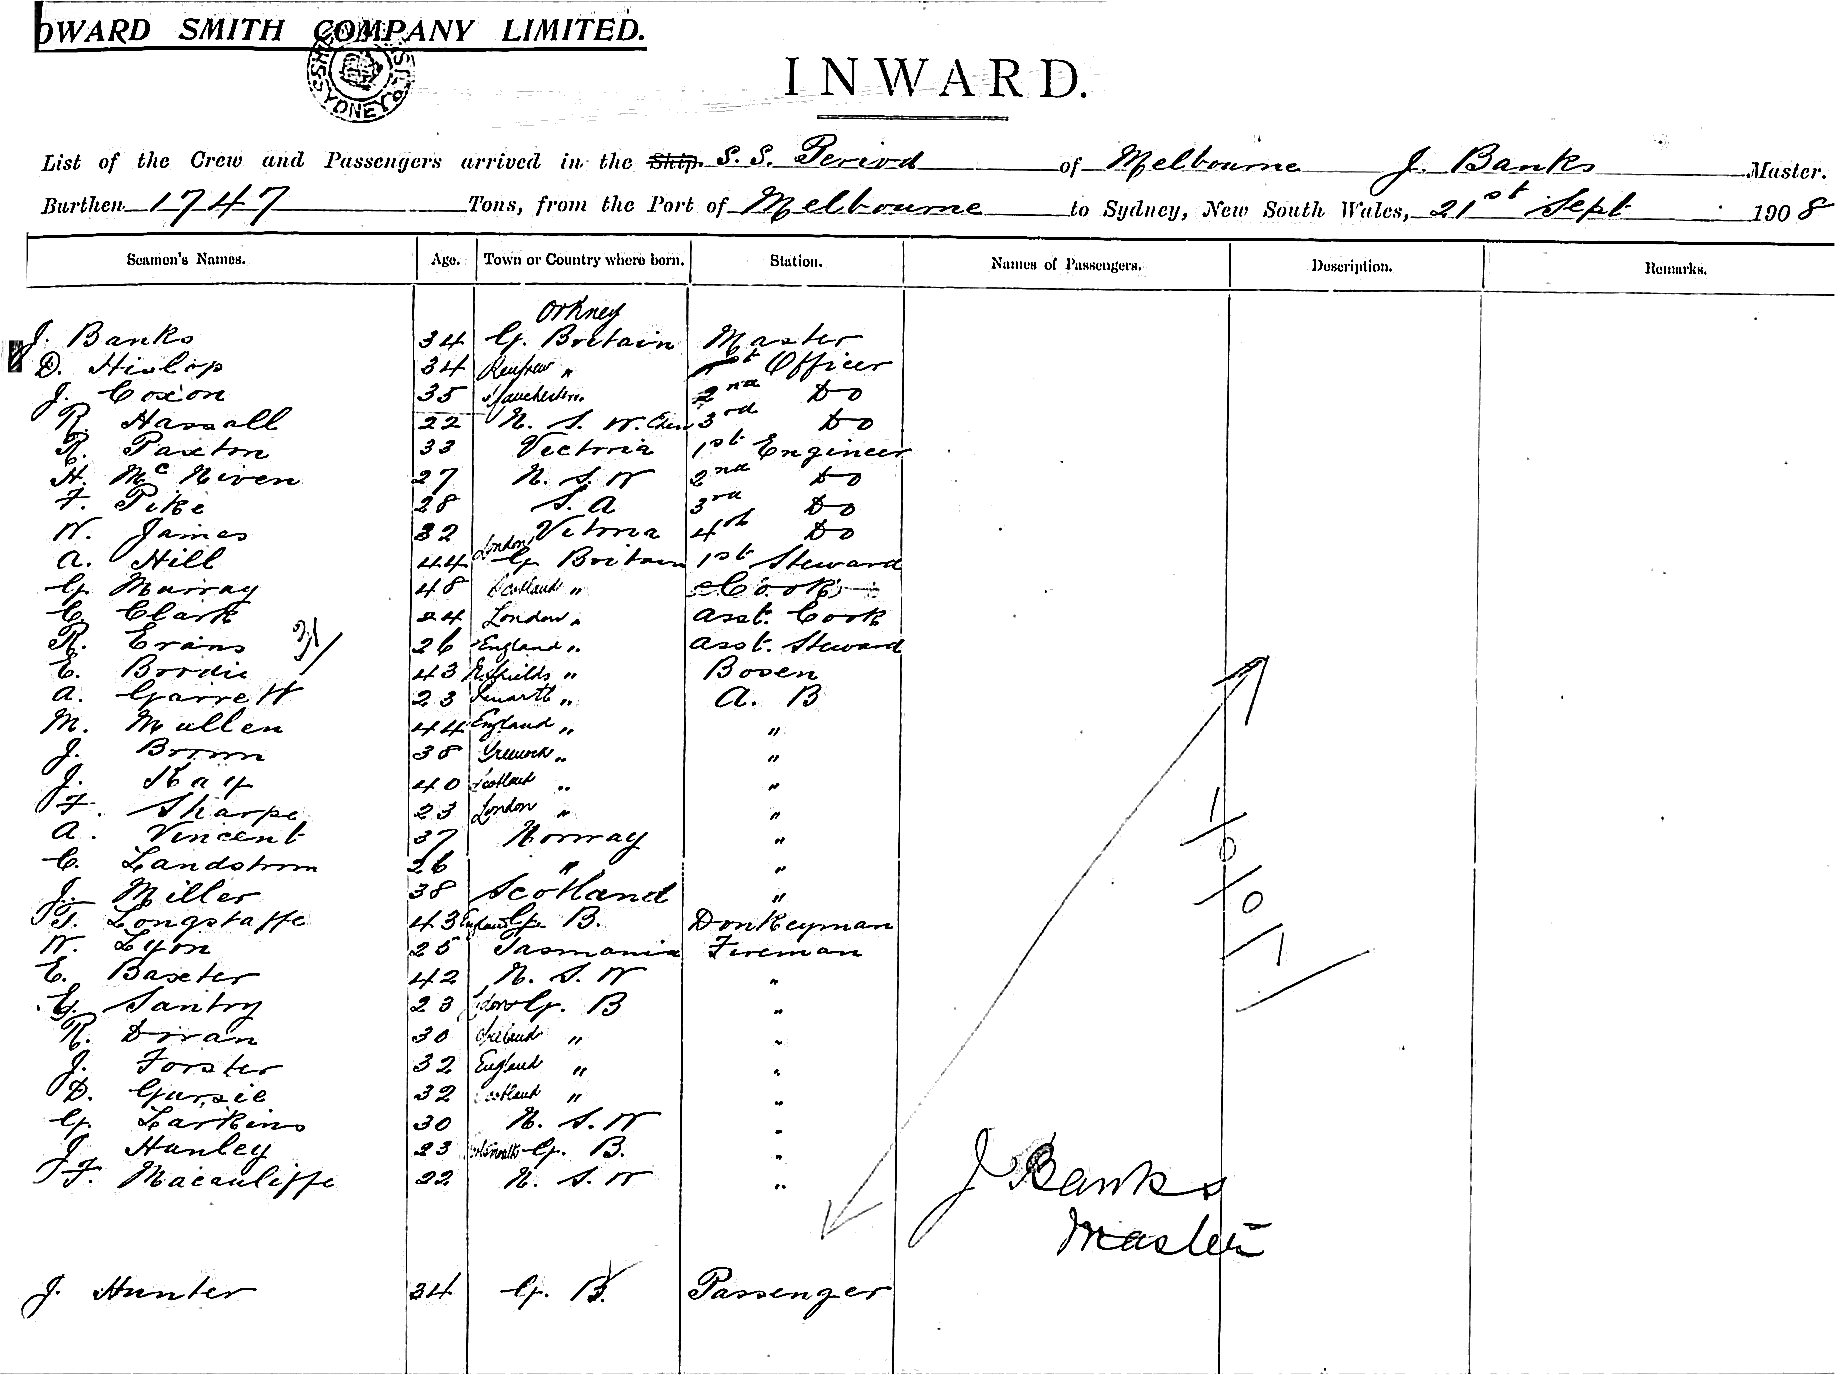 OWARD SMITH COMPANY LIMITED.
SYDNEY
INWARD.
List of the Crew and Passengers arrived in the Ship. S.S. Period of Melbourne J. Banks Master.
Burthen 1747 Tons, from the Port of Melbourne to Sydney, New South Wales, 21st Sept 1908
Seamen's Names. Age. Town or Country where born. Station. Names of Passengers. Description. Remarks.
Orkney
J. Banks 34 G. Britain Master
D. Hislop 34 Renfrew " 1st Officer
J. Coxon 35 Manchester " 2nd Do
R. Hassall 22 N. S. W. 3rd Do
R. Paxton 33 Victoria 1st Engineer
H. McNiven 27 N. S. W 2nd Do
F. Pike 28 S. A 3rd Do
W. James 32 Vitoria 4th Do
A. Hill 44 London G Britain 1st Steward
G Murray 48 Scotland " Cook
C. Clark 24 London " asst. Cook
R. Evans 31 26 England " asst. Steward
E. Bordie 43 N. Shields " Bosen
A. Garrett 23 Penarth " A. B
M. Mullen 44 England " "
J. Brown 38 Greenock " "
J. Kay 40 Scotland " "
F. Sharpe 23 London " "
A. Vincent 37 Norway "
C. Landstrom 26 " "
J. Miller 38 Scotland "
T. Longstaffe 43 England G. B. Donkeyman
W. Lyon 25 Tasmania Fireman
E. Baxter 42 N. S. W "
G. Santry 23 G. B "
R. Doran 30 Ireland " "
J. Forster 32 England " "
D. Gursie 32 Scotland " "
G. Larkins 30 N. S. W "
J. Hanley 23 G. B. "
F. Macauliffe 22 N. S. W "
J Banks
Master
J. Hunter 34 G. B. Passenger